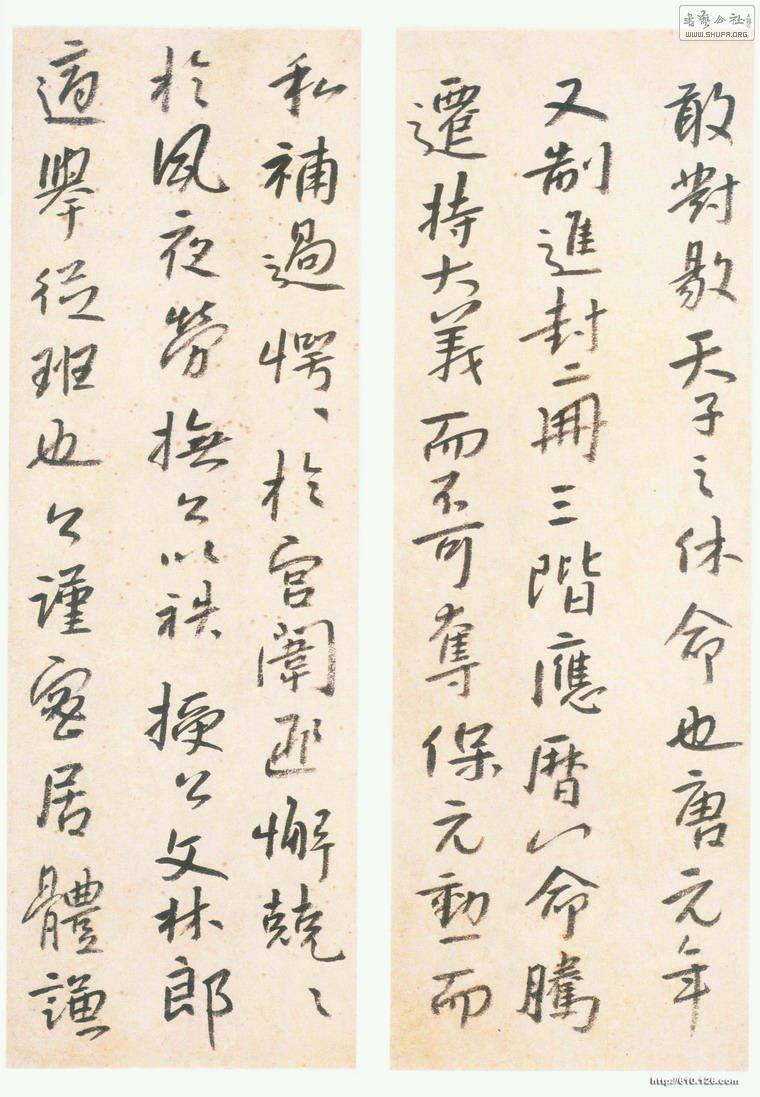 敢對敭天子之休命也唐元年
又制進封二冊三階應曆八命騰
遷持大義而不可奪保元勳一而
私補過愕〻於宮闈匪懈兢〻
於夙夜勞撫公以袟授公文林郎
適舉從班也公謹密居體謙
WWW.SHUFA.ORG
http://610.126.com/